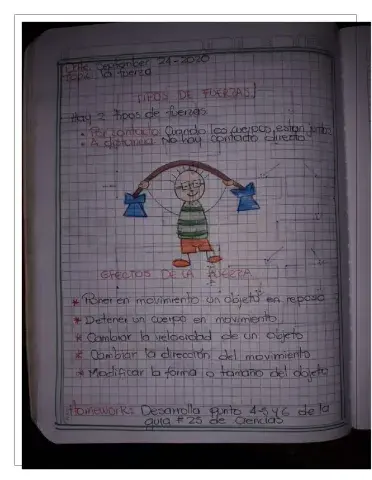 Date: September 24-2020
Topic: la fuerza
TIPOS DE FUERZAS!
Hay 2 tipos de fuerzas
• Por contacto: Cuando los cuerpos están juntos
• A distancia: No hay contacto directo
EFECTOS DE LA FUERZA
* Poner en movimiento un objeto en reposo
* Detener un cuerpo en movimiento
* Cambiar la velocidad de un objeto
* Cambiar la dirección del movimiento
* Modificar la forma o tamaño del objeto
Homework: Desarrolla punto 4-5 y 6 de la
guia #25 de Ciencias